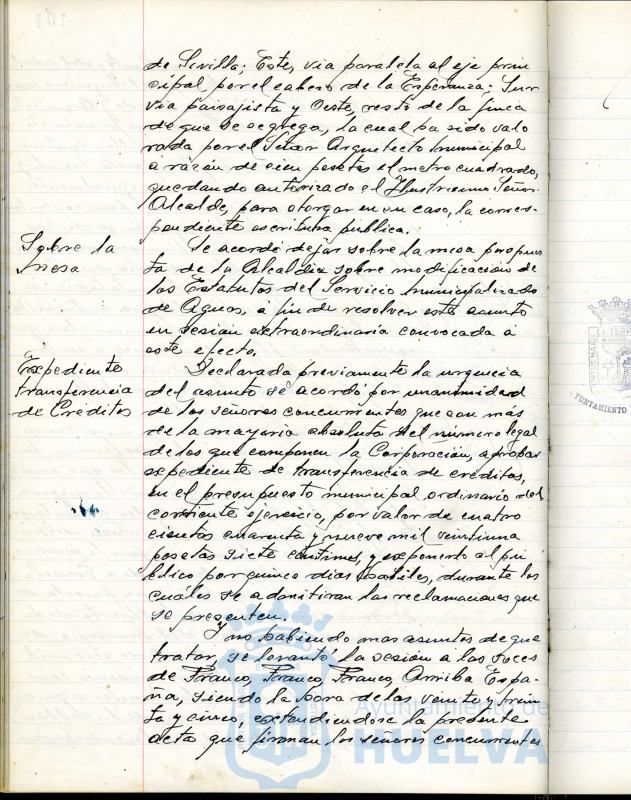 de Sevilla; Este, via paralela al eje prin
cipal por el cabezo de la Esperanza; Sur
via paisajista y Oeste, resto de la finca
de que se segrega, la cual ha sido valo
rada por el Señor Arquitecto municipal
a razón de cien pesetas el metro cuadrado,
quedando autorizado el Ilustrisimo Señor
Alcalde, para otorgar en su caso, la corres-
pondiente escritura pública.
Sobre la
mesa
Se acordó dejar sobre la mesa propues
ta de la Alcaldia sobre modificación de
los Estatutos del Servicio municipalizado
de Aguas, a fin de resolver este asunto
en sesion extraordinaria convocada a
este efecto.
Expediente
transferencia
de Creditos
Declarada previamente la urgencia
del asunto se acordó por unanimidad
de los señores concurrentes que son más
de la mayoria absoluta del número legal
de los que componen la Corporación, aprobar
expediente de transferencia de creditos,
en el presupuesto municipal ordinario del
corriente ejercicio, por valor de cuatro
cientas cuarenta y nueve mil veintiuna
pesetas siete centimos, y exponerlo al pú
blico por quince dias habiles, durante los
cuáles se admitiran las reclamaciones que
se presenten.
Y no habiendo mas asuntos de que
tratar, se levantó la sesión a las voces
de Franco, Franco, Franco, Arriba Espa-
ña, siendo la hora de las veinte y trein
ta y cinco, extendiendose la presente
acta que firman los señores concurrentes
Ayuntamiento de
HUELVA